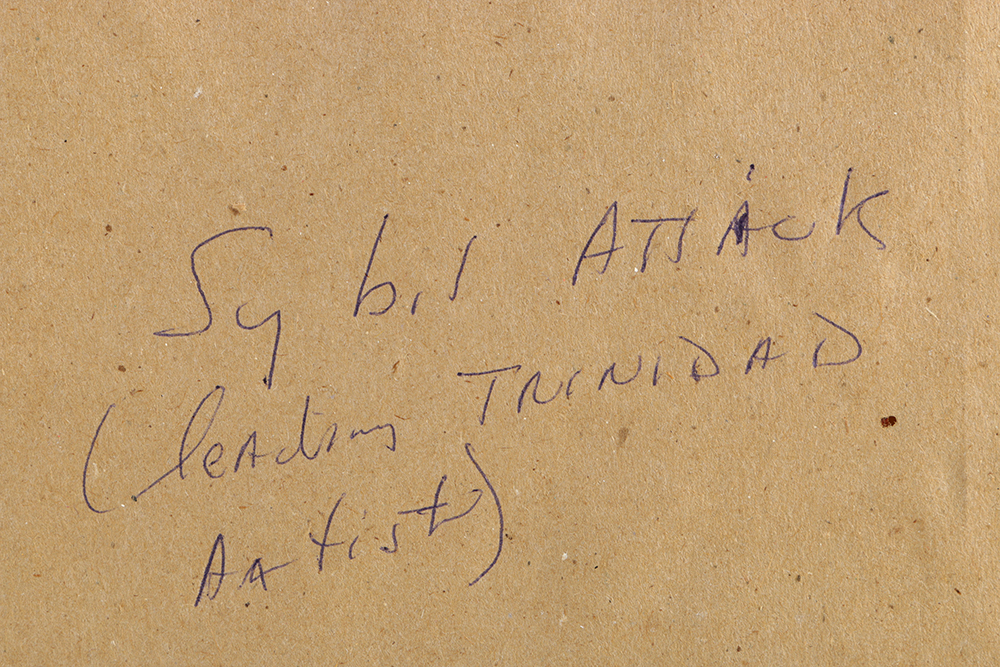 Sybil ATTACK
(leading TRINIDAD
Artist)